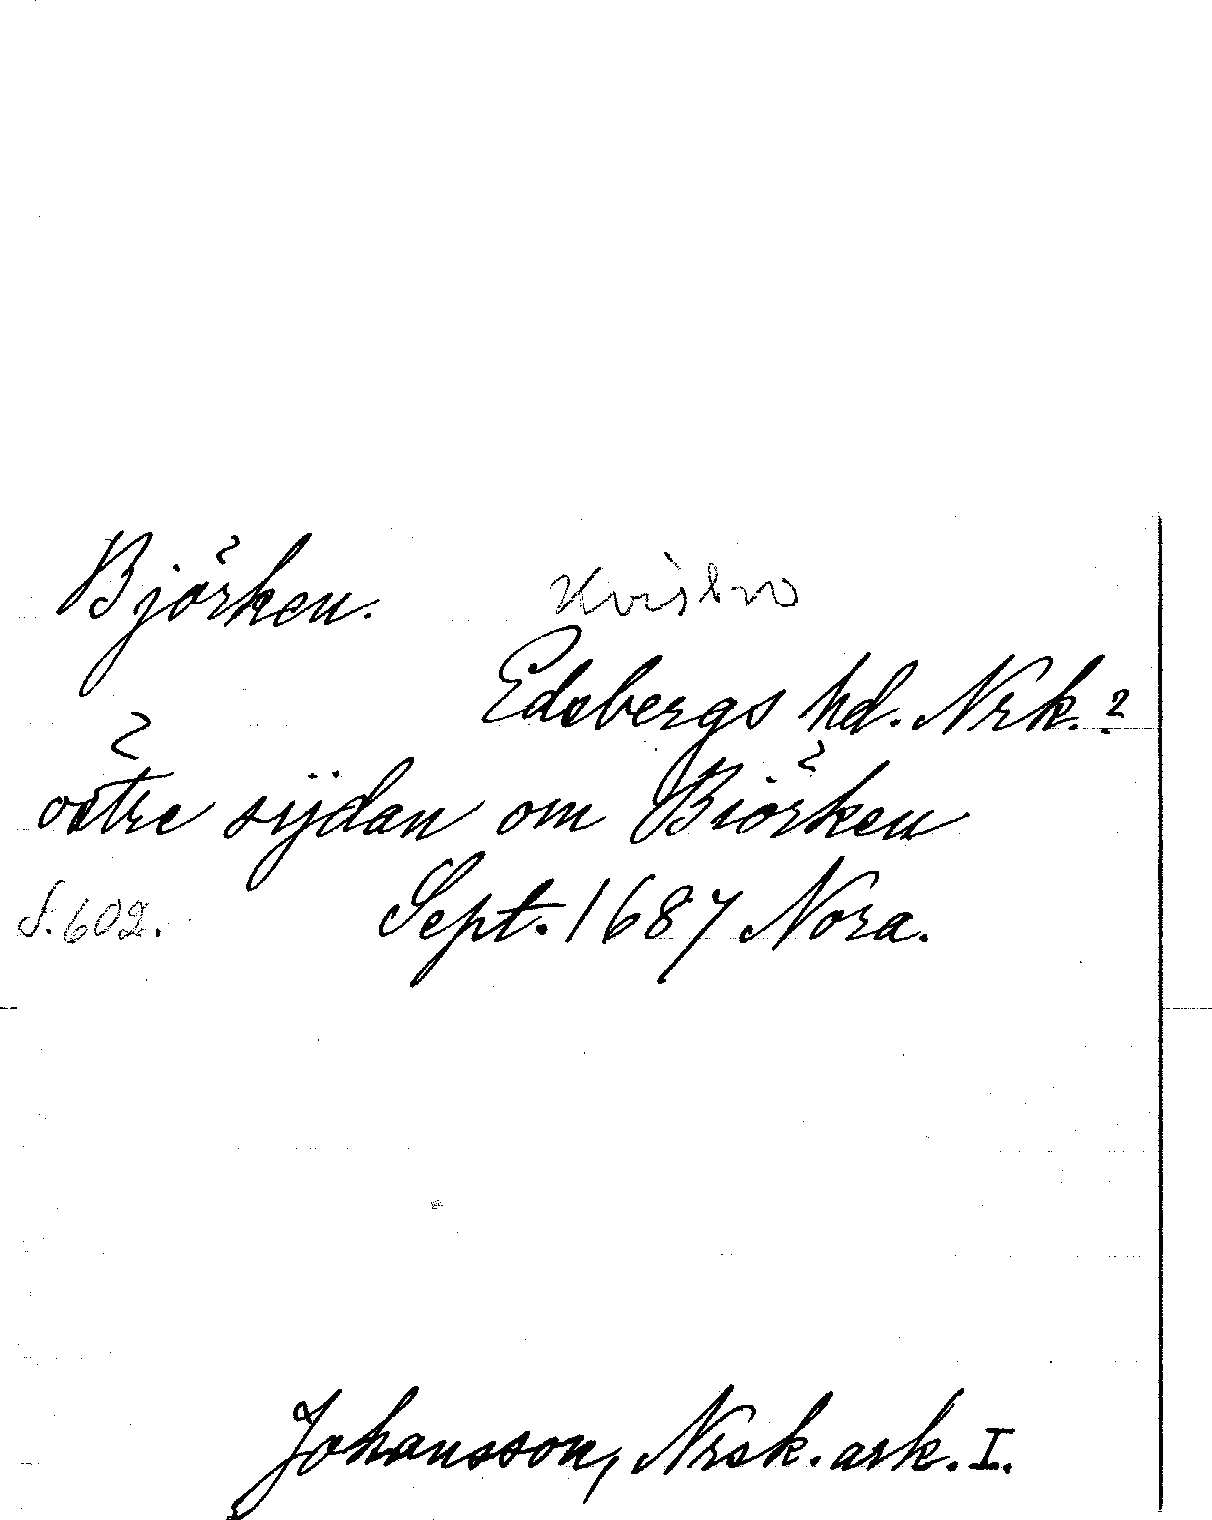 Björken. Kvisbro
Edsbergs hd. Nrk.?
östre sÿdan om Biörken
S. 602. Sept. 1687 Nora.
Johansson, Nrsk. ark. I.